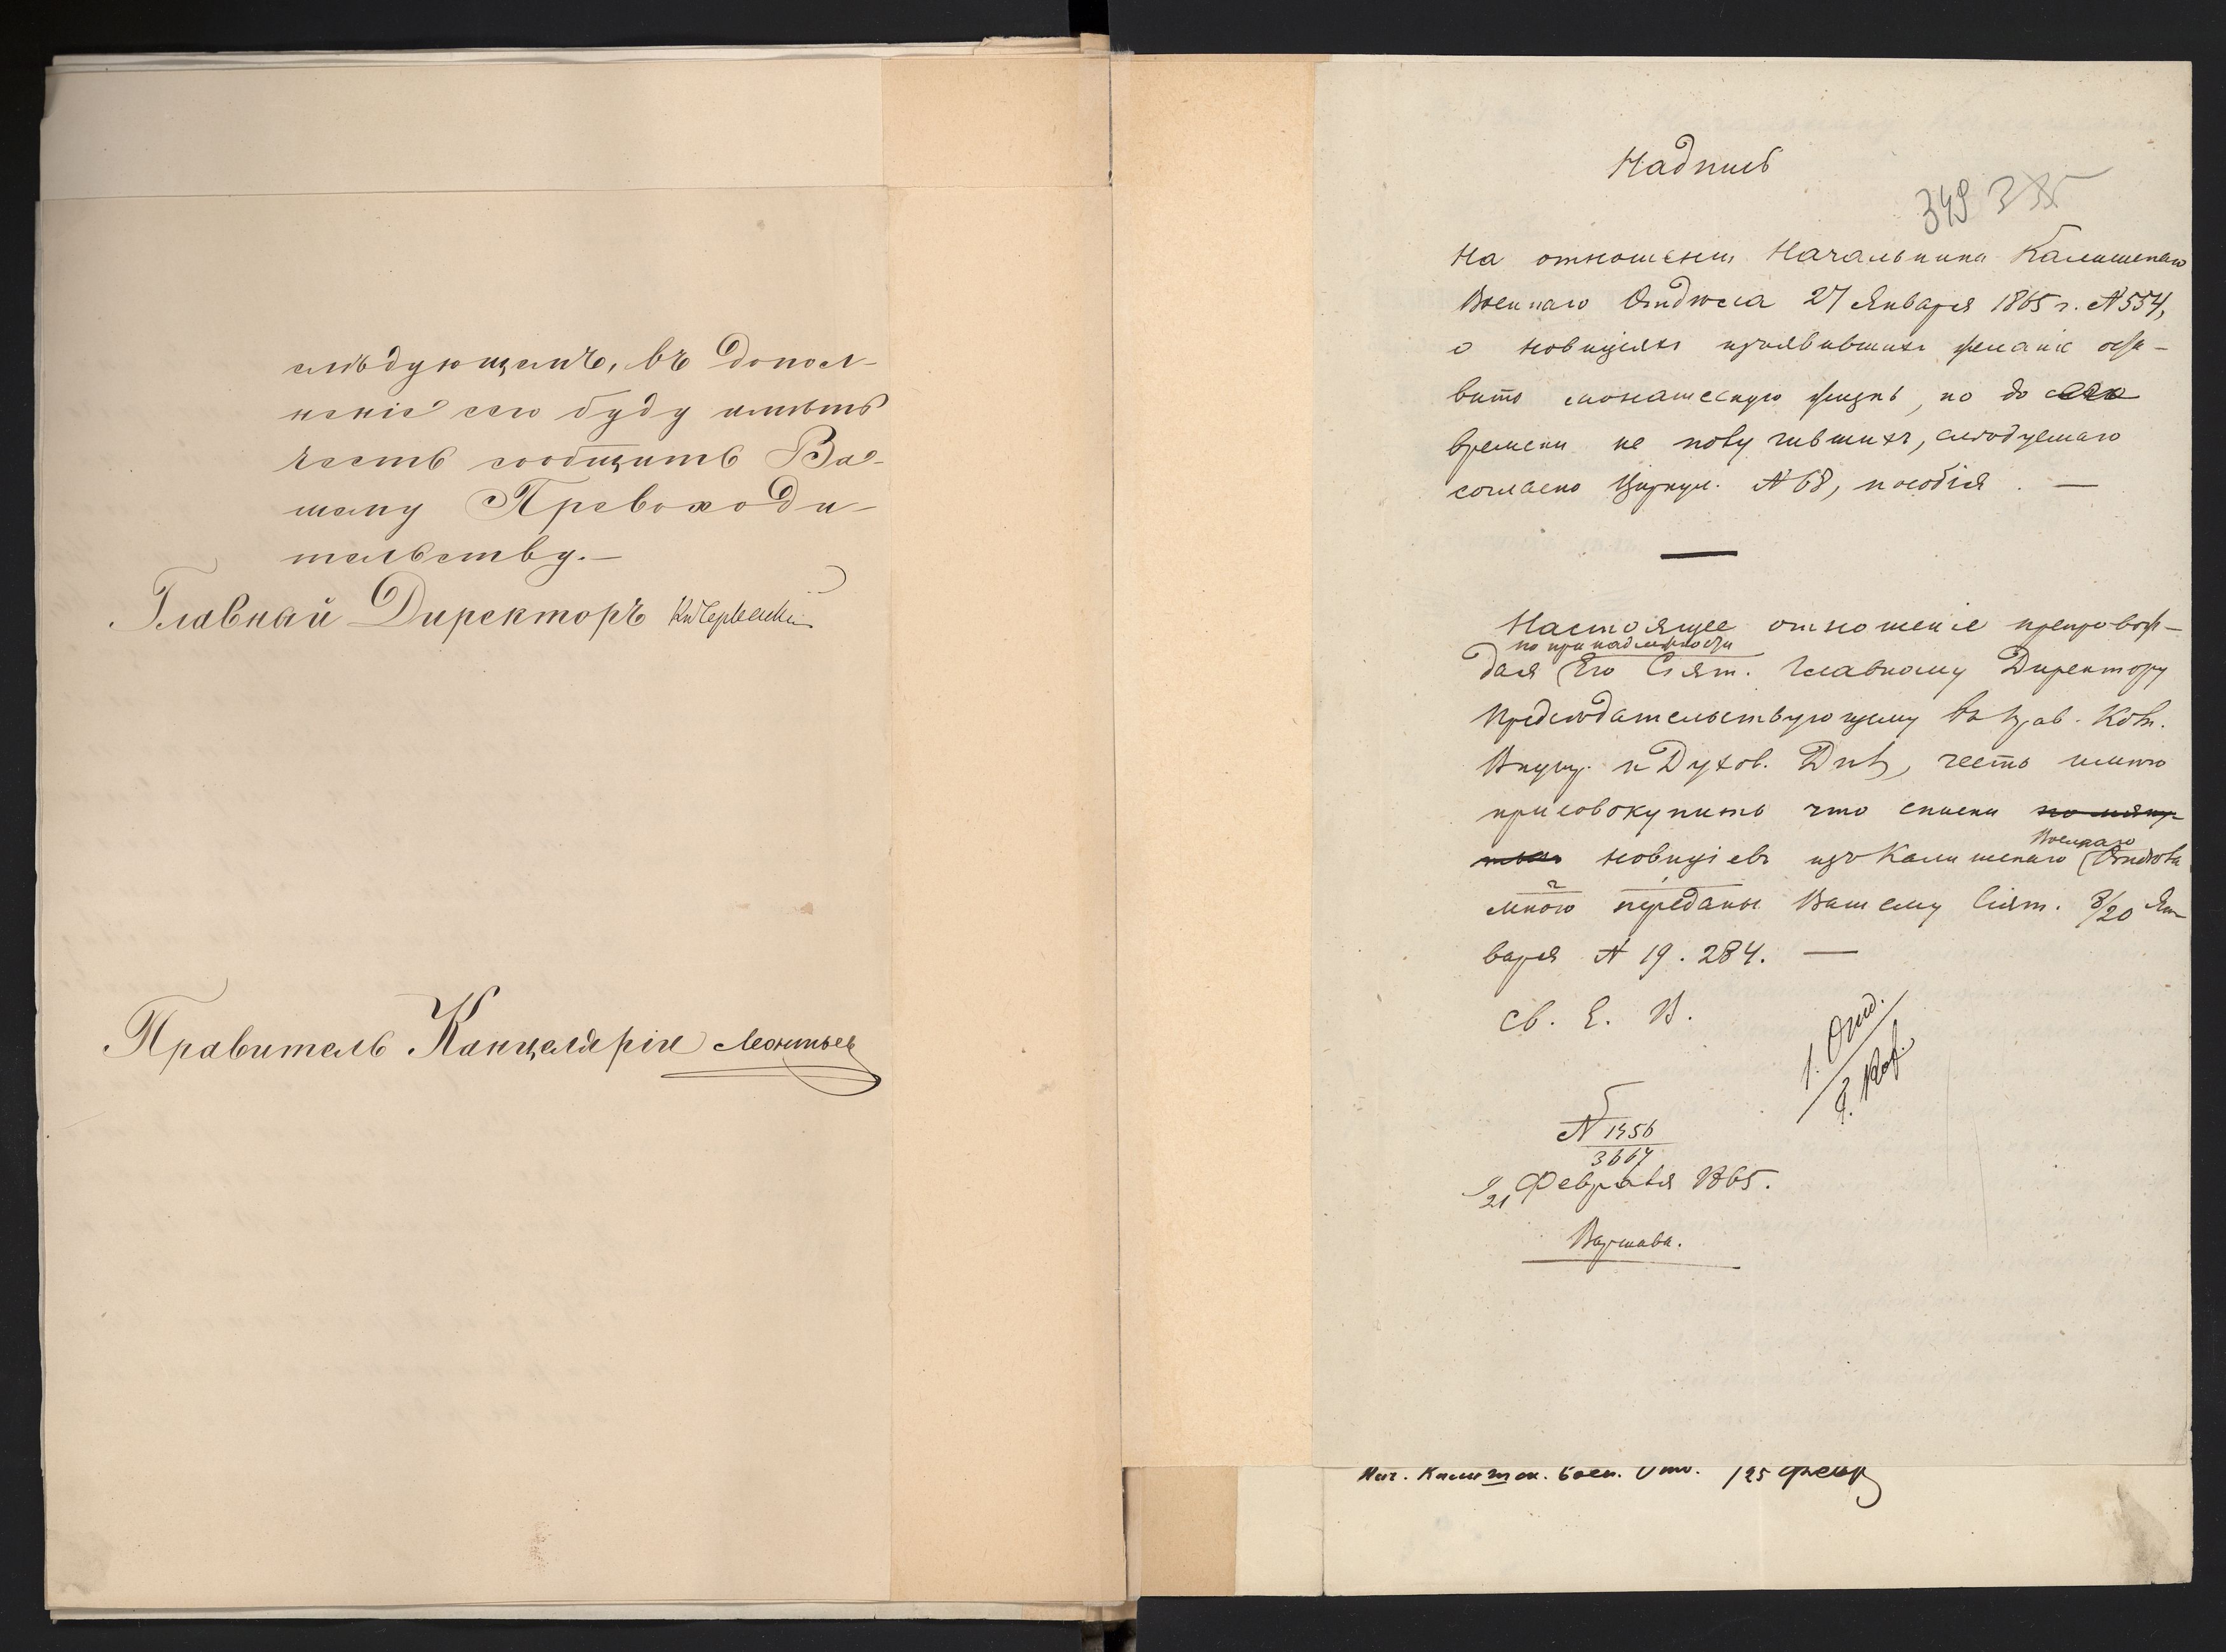 слѣдующемъ, въ допол-
неніе сего буду имѣть
честь сообщить Ва-
шему Превосходи-
тельству.—
Главный Директоръ Кн Черкаскій
Правитель Канцеляріи Леонтьев
Надпись
349
На отношеніи Начальника Калишскаго
Военнаго Отдѣла 27 Января 1865 г. № 554,
о новиціяхъ изъявившихъ желаніе оста-
вить монашескую жизнь, но до сего
времени не получившихъ, слѣдуемаго
согласно Циркул. № 68, пособія. —
Настоящее отношеніе препровож-
по принадлежности
дая Его Сіят. Главному Директору
Предсѣдательствующему въ Прав. Ком.
Внутр. и Духов. Дѣлъ, честь имѣю
присовокупить что списки
Военнаго
новиціевъ изъ Калишскаго Отдѣла
мною переданы Вашему Сіят. 8/20 Ян-
варя № 19.284. —
Св. Е. В.
1. Отд.
№ 1456
3667
9/21 Февраля 1865.
Варшава.
Нач. Калишск. Воен. Отд. /25 Февр